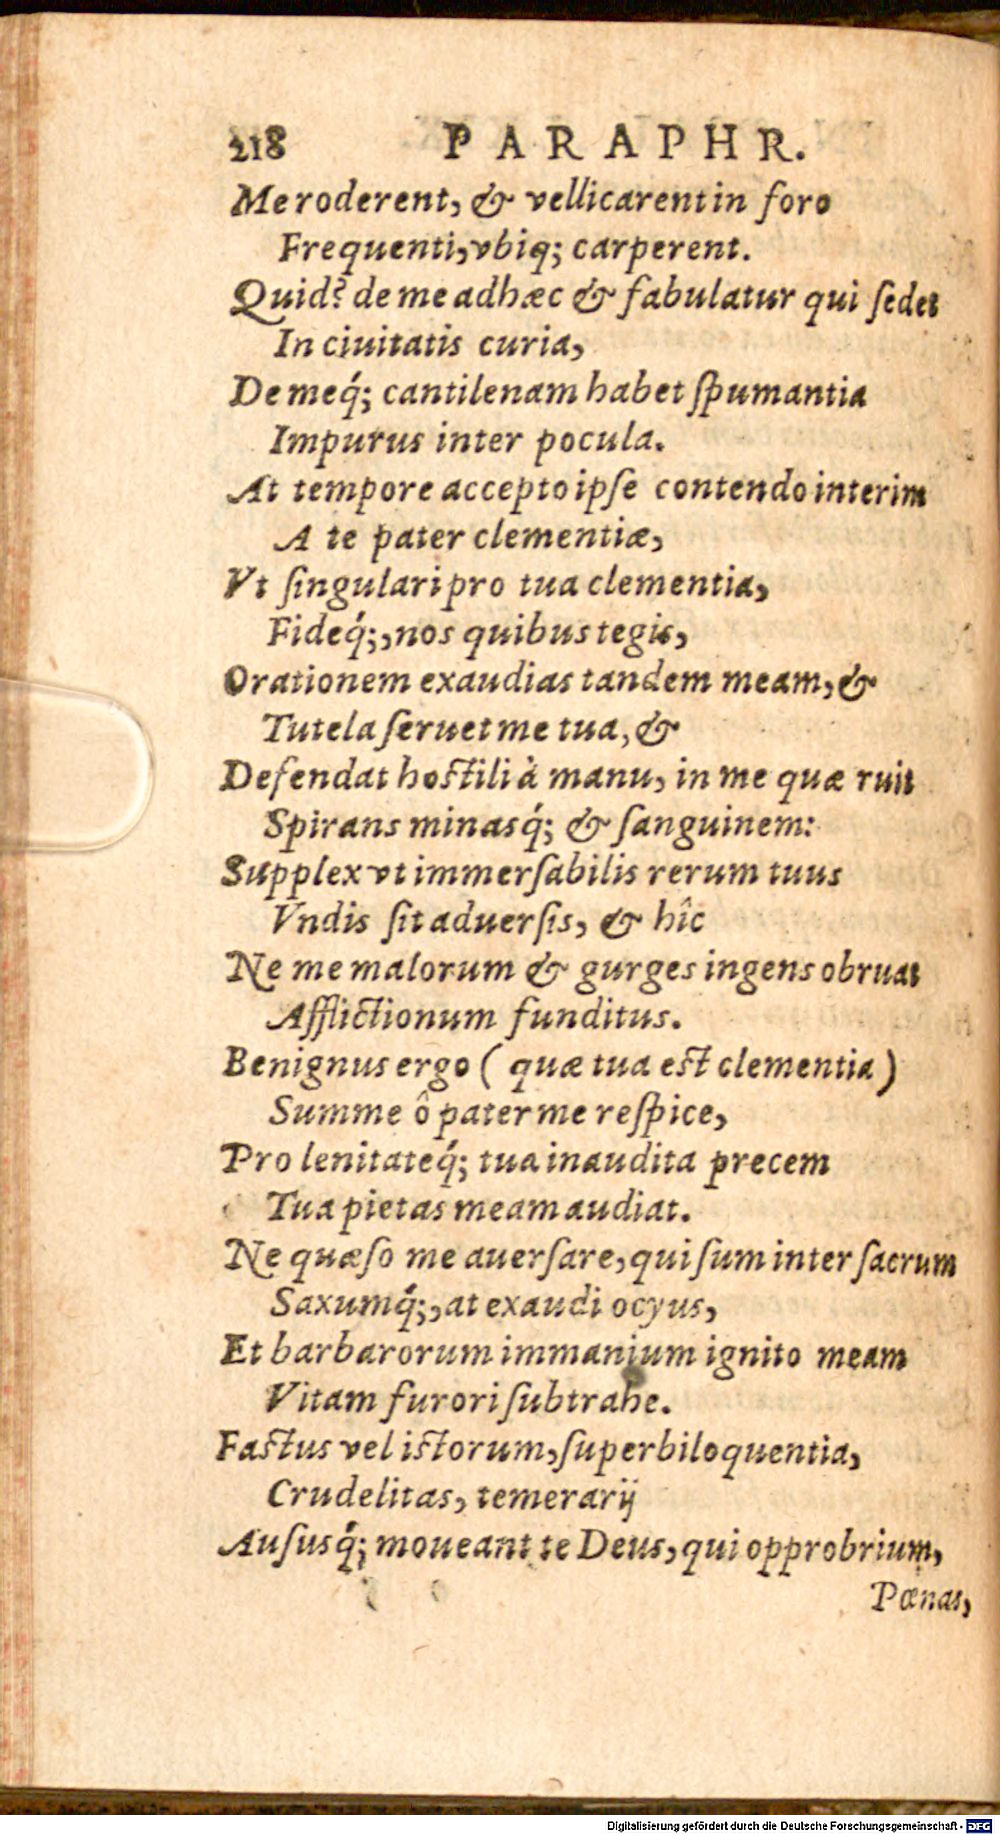 218 PARAPHR.
Me roderent, & vellicarent in foro
Frequenti, vbiq; carperent.
Quid? de me adhæc & fabulatur qui ſedet
In ciuitatis curia,
De meq́; cantilenam habet ſpumantia
Impurus inter pocula.
At tempore accepto ipſe contendo interim
A te pater clementiæ,
Vt ſingulari pro tua clementia,
Fideq́;, nos quibus tegis,
Orationem exaudias tandem meam, &
Tutela ſeruet me tua, &
Defendat hoſtili à manu, in me quæ ruit
Spirans minasq́; & ſanguinem:
Supplex vt immerſabilis rerum tuus
Vndis ſit aduerſis, & hîc
Ne me malorum & gurges ingens obruat
Afflictionum funditus.
Benignus ergo (quæ tua eſt clementia)
Summe ô pater me reſpice,
Pro lenitateq́; tua inaudita precem
Tua pietas meam audiat.
Ne quæſo me auerſare, qui ſum inter ſacrum
Saxumq́;, at exaudi ocyus,
Et barbarorum immanium ignito meam
Vitam furori ſubtrahe.
Faſtus vel iſtorum, ſuperbiloquentia,
Crudelitas, temerarij
Auſusq́; moueant te Deus, qui opprobrium,
Pœnas,
Digitalisierung gefördert durch die Deutsche Forschungsgemeinschaft - DFG